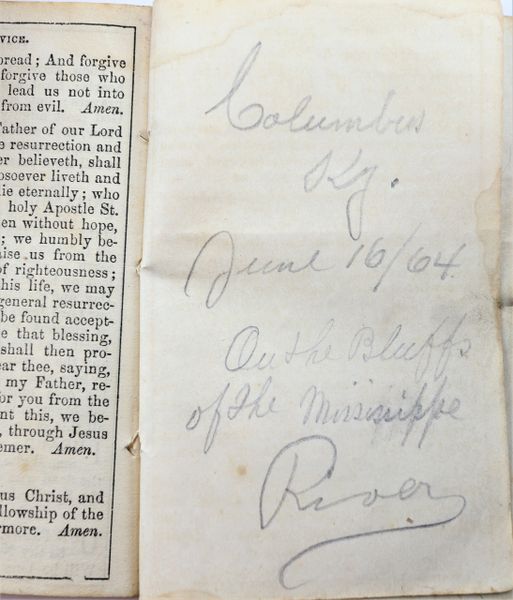 VICE.
bread; And forgive
forgive those who
lead us not into
from evil. Amen.
Father of our Lord
e resurrection and
er believeth, shall
hosoever liveth and
lie eternally; who
holy Apostle St.
en without hope,
; we humbly be-
aise us from the
of righteousness;
his life, we may
general resurrec-
be found accept-
e that blessing,
shall then pro-
ear thee, saying,
my Father, re-
or you from the
nt this, we be-
, through Jesus
emer. Amen.
us Christ, and
llowship of the
rmore. Amen.
Columbus
Ky.
June 16/64.
On the Bluffs
of the Missisippe
River